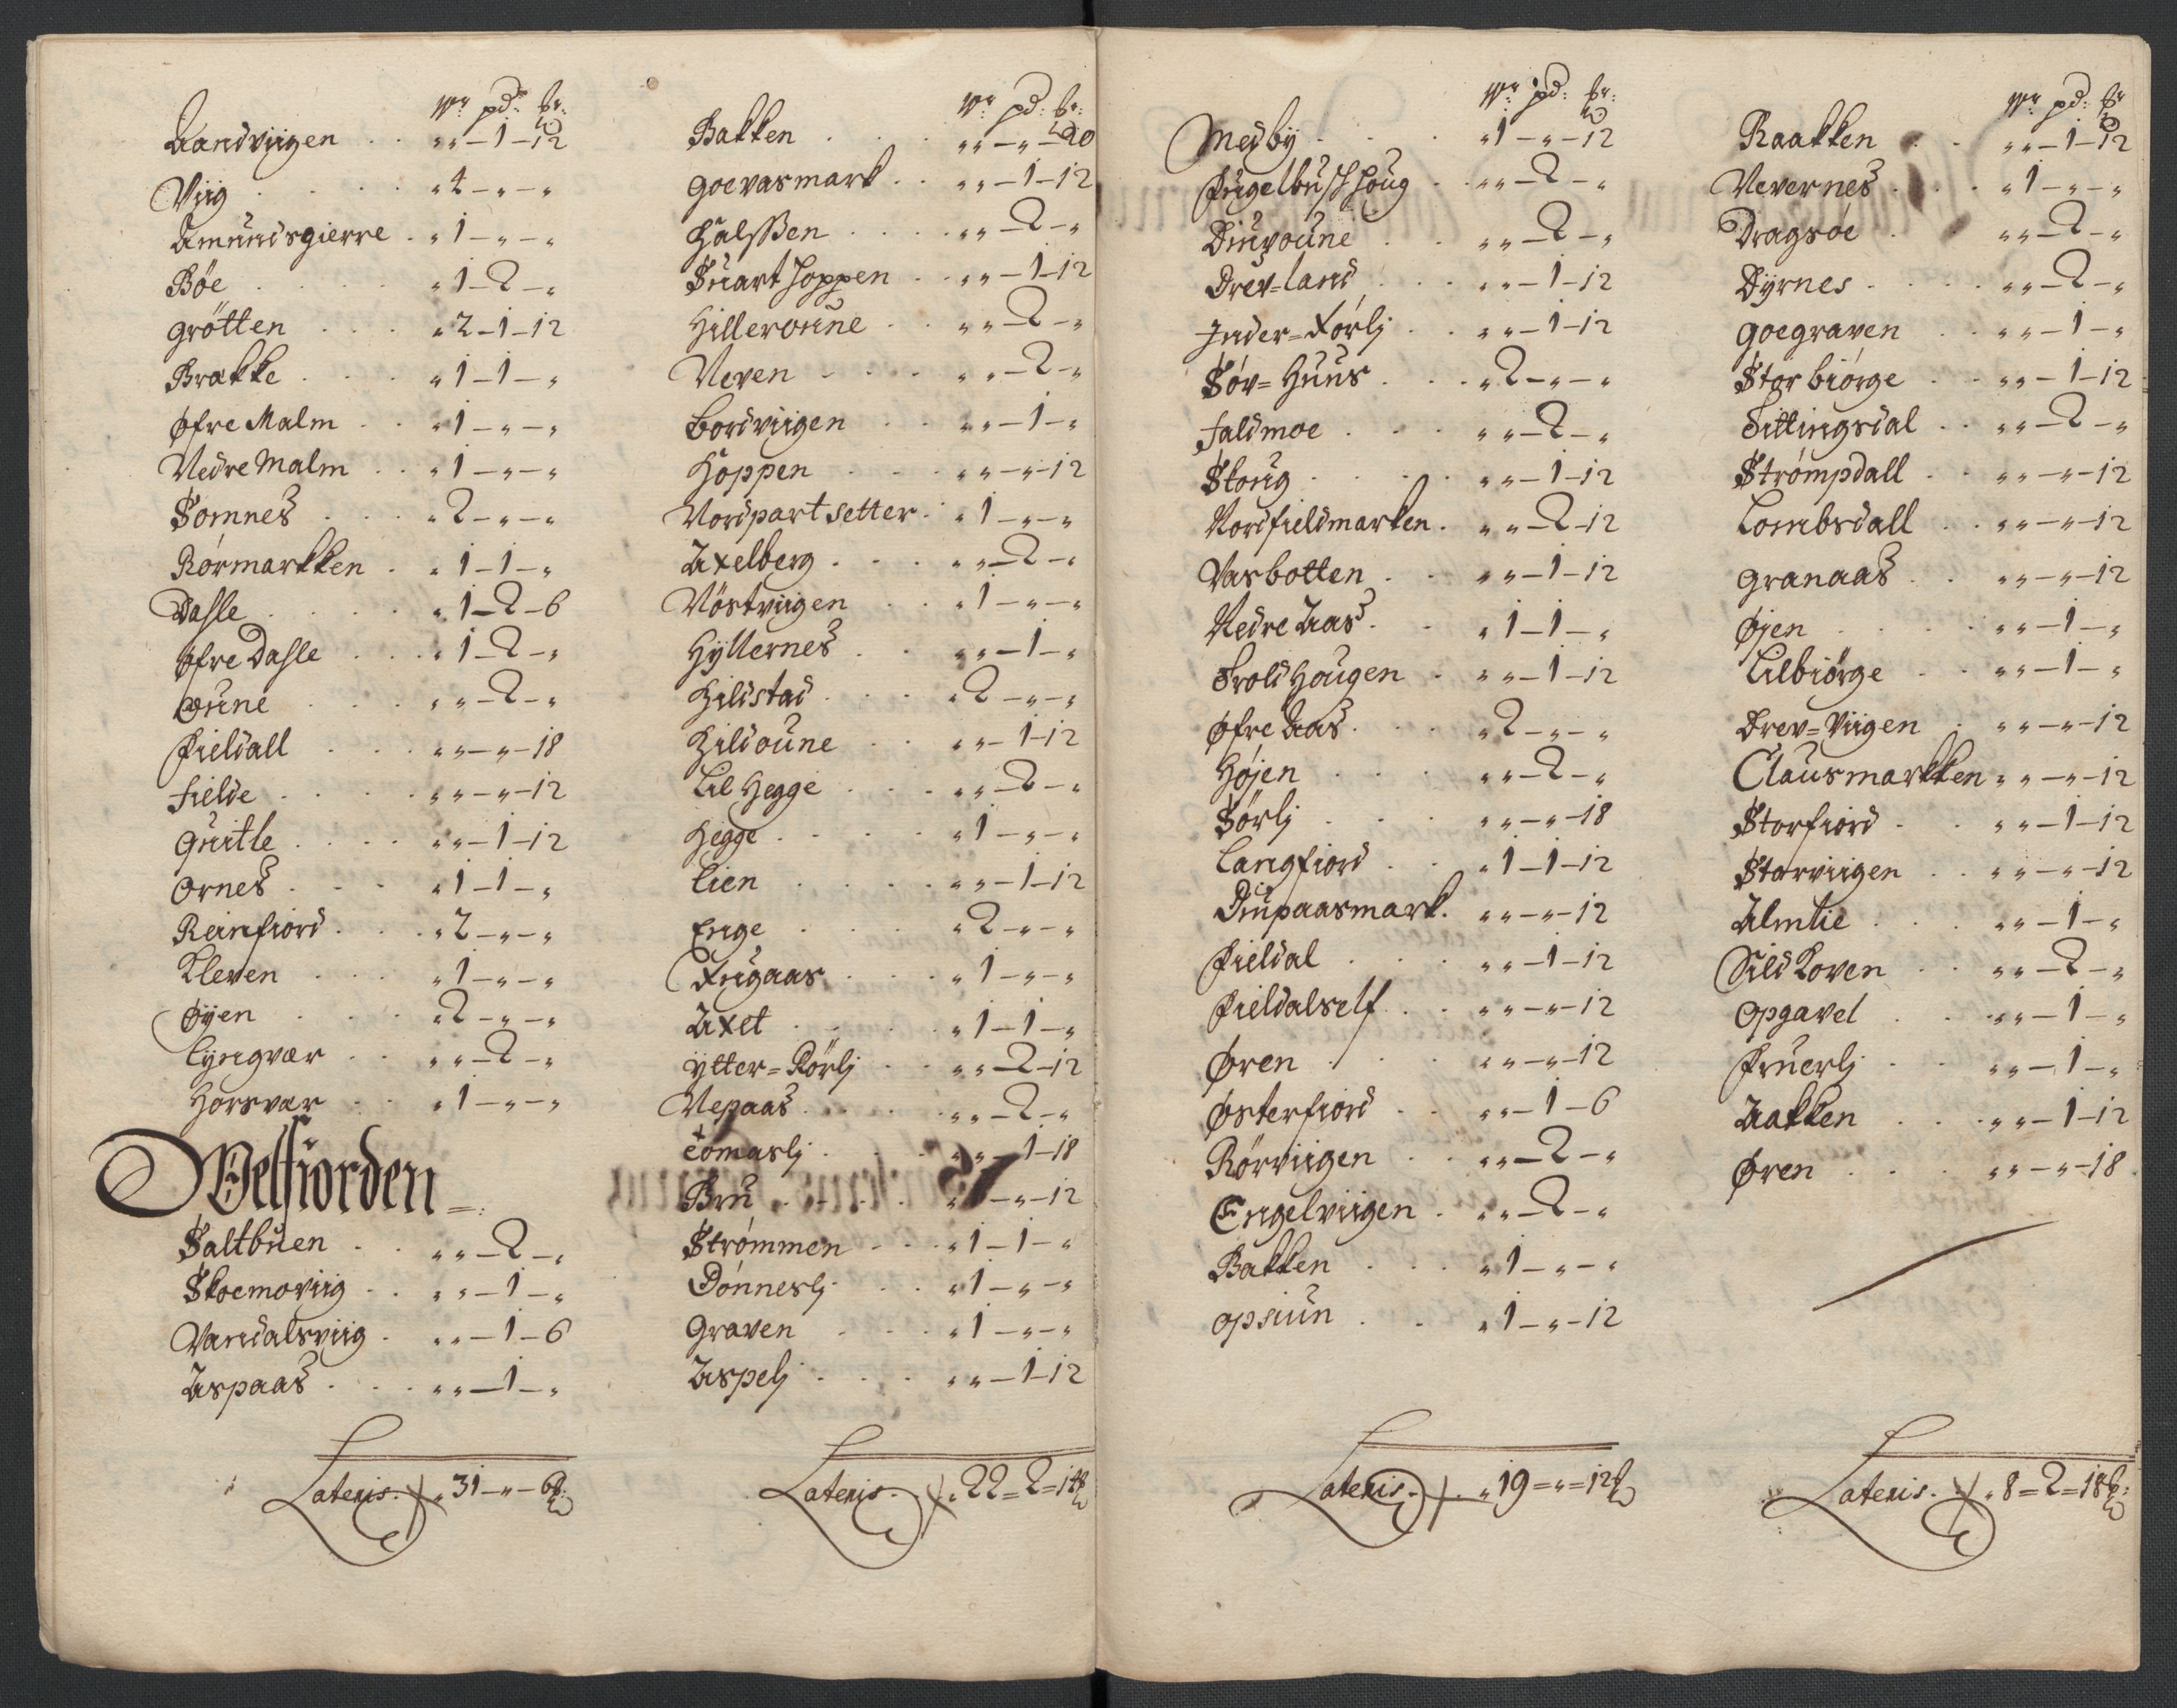 Wr pd: ℔:
Aandviigen . . „ „ – 1 – 12
Viig . . . . „ 4 – „ – „
Amundsgierre . „ 1 – „ – „
Bøe . . . . „ 1 – 2 – „
Grøtten . . . „ 2 – 1 – 12
Brække . . . „ 1 – 1 – „
Øfre Malm . . „ 1 – „ – „
Nedre Malm . . „ 1 – „ – „
Somnes . . . „ 2 – „ – „
Rørmarkken . „ 1 – 1 – „
Dahle . . . . „ 1 – 2 – 6
Øfre Dahle . . „ 1 – 2 – „
Oune . . . „ „ – 2 – „
Fieldall . . . „ „ – „ – 18
Fielde . . . . „ „ – „ – 12
Guitle . . . . „ „ – 1 – 12
Ornes . . . „ 1 – 1 – „
Reinfiord . . . „ 2 – „ – „
Kleven . . . „ 1 – „ – „
Øyen . . . „ 2 – „ – „
Lyngvær . . „ „ – 2 – „
Horsvær . . „ 1 – „ – „
Welfiorden =:
Saltbuen . . „ „ – 2 – „
Skoemoviig . . „ „ – 1 – „
Vandalsviig . „ „ – 1 – 6
Aspaas . . . „ „ – 1 – „
Lateris . „ 31 – „ – 6 ℔:
Wr pd: ℔:
Bakken . . . „ „ – „ – 20
Goevasmark . . „ „ – 1 – 12
Halssen . . . . „ „ – 2 – „
Suarthoppen . . „ „ – 1 – 12
Hilleroune . . „ „ – 2 – „
Neven . . . . „ „ – 2 – „
Bordviigen . . „ „ – 1 – „
Hoppen . . . „ „ – „ – 12
Nordpart setter . „ 1 – „ – „
Axelberg . . . „ „ – 2 – „
Nöstviigen . . „ 1 – „ – „
Hyllernes . . „ „ – 1 – „
Hildstad . . . „ 2 – „ – „
Hildoune . . „ „ – 1 – 12
Lil Hegge . . . „ „ – 2 – „
Hegge . . . . „ 1 – „ – „
Lien . . . . „ „ – 1 – 12
Enge . . . „ 2 – „ – „
Tugaas . . . „ 1 – „ – „
Axet . . . . „ 1 – 1 – „
Ytter = Rörlj . . „ „ – 2 – 12
Nepaas . . . . „ „ – 2 – „
Tomaslj . . . „ „ – 1 – 18
Bru . . . . „ 1 – „ – 12
Strømmen . . . „ 1 – 1 – „
Dønneslj . . „ 1 – „ – „
Graven . . . „ 1 – „ – „
Aspelj . . . . „ „ – 1 – 12
Lateris . „ 22 = 2 = 14 ℔
Wr pd: ℔:
Medby . . . . „ 1 – „ – 12
Fugelbushoug . . „ „ – 2 – „
Diuvoune . . „ „ – 2 – „
Drev = land . . . „ „ – 1 – 12
Inder = Körlj . . „ „ – 1 – 12
Søv = Huus . . . „ 2 – „ – „
Faldmoe . . . „ „ – 2 – „
Skoug . . . . „ „ – 1 – 12
Nordfieldmarken . „ „ – 2 – 12
Vasbotten . . „ „ – 1 – 12
Nedre Aas . . „ 1 – 1 – „
Trold Hougen . „ „ – 1 – 12
Øfre Aas . . . „ 2 – „ – „
Højen . . . „ „ – 2 – „
Sörlj . . . „ „ – „ – 18
Langfiord . . „ 1 – 1 – 12
Diupaasmark . „ „ – „ – 12
Fieldal . . . „ „ – 1 – 12
Fieldalself . . „ „ – „ – 12
Øren . . . . „ „ – „ – 12
Østerfiord . . „ „ – 1 – 6
Rörviigen . . „ „ – 2 – „
Engelviigen . „ „ – 2 – „
Bakken . . . „ 1 – „ – „
Opsiun . . „ 1 – „ – 12
Lateris . „ 19 = „ = 12 ℔
Wr pd: ℔
Raakken . . „ „ – 1 – 12
Nevernes . . . „ 1 – „ – „
Dragsøe . . „ „ – 2 – „
Dyrnes . . . . „ „ – 2 – „
Goegraven . . „ „ – 1 – „
Storbiørge . . „ „ – 1 – 12
Sittingsdal . . „ „ – 2 – „
Strømpdall . . „ „ – „ – 12
Lombsdall . . „ „ – „ – 12
Granaas . . „ „ – „ – 12
Øjen . . . . „ „ – 1 – „
Lilbiørge . . „ „ – 1 – „
Drev = Viigen . „ „ – „ – 12
Clausmarkken „ „ – „ – 12
Storfiord . . „ „ – 1 – 12
Storviigen . . „ „ – „ – 12
Almlie . . . „ „ – 1 – „
Sildkoven . . „ „ – 2 – „
Opgavel . . . „ „ – 1 – „
Fruerlj . . . „ „ – 1 – „
Aakken . . . „ „ – 1 – 12
Øren . . . „ „ – „ – 18
Lateris . „ 8 = 2 = 18 ℔: